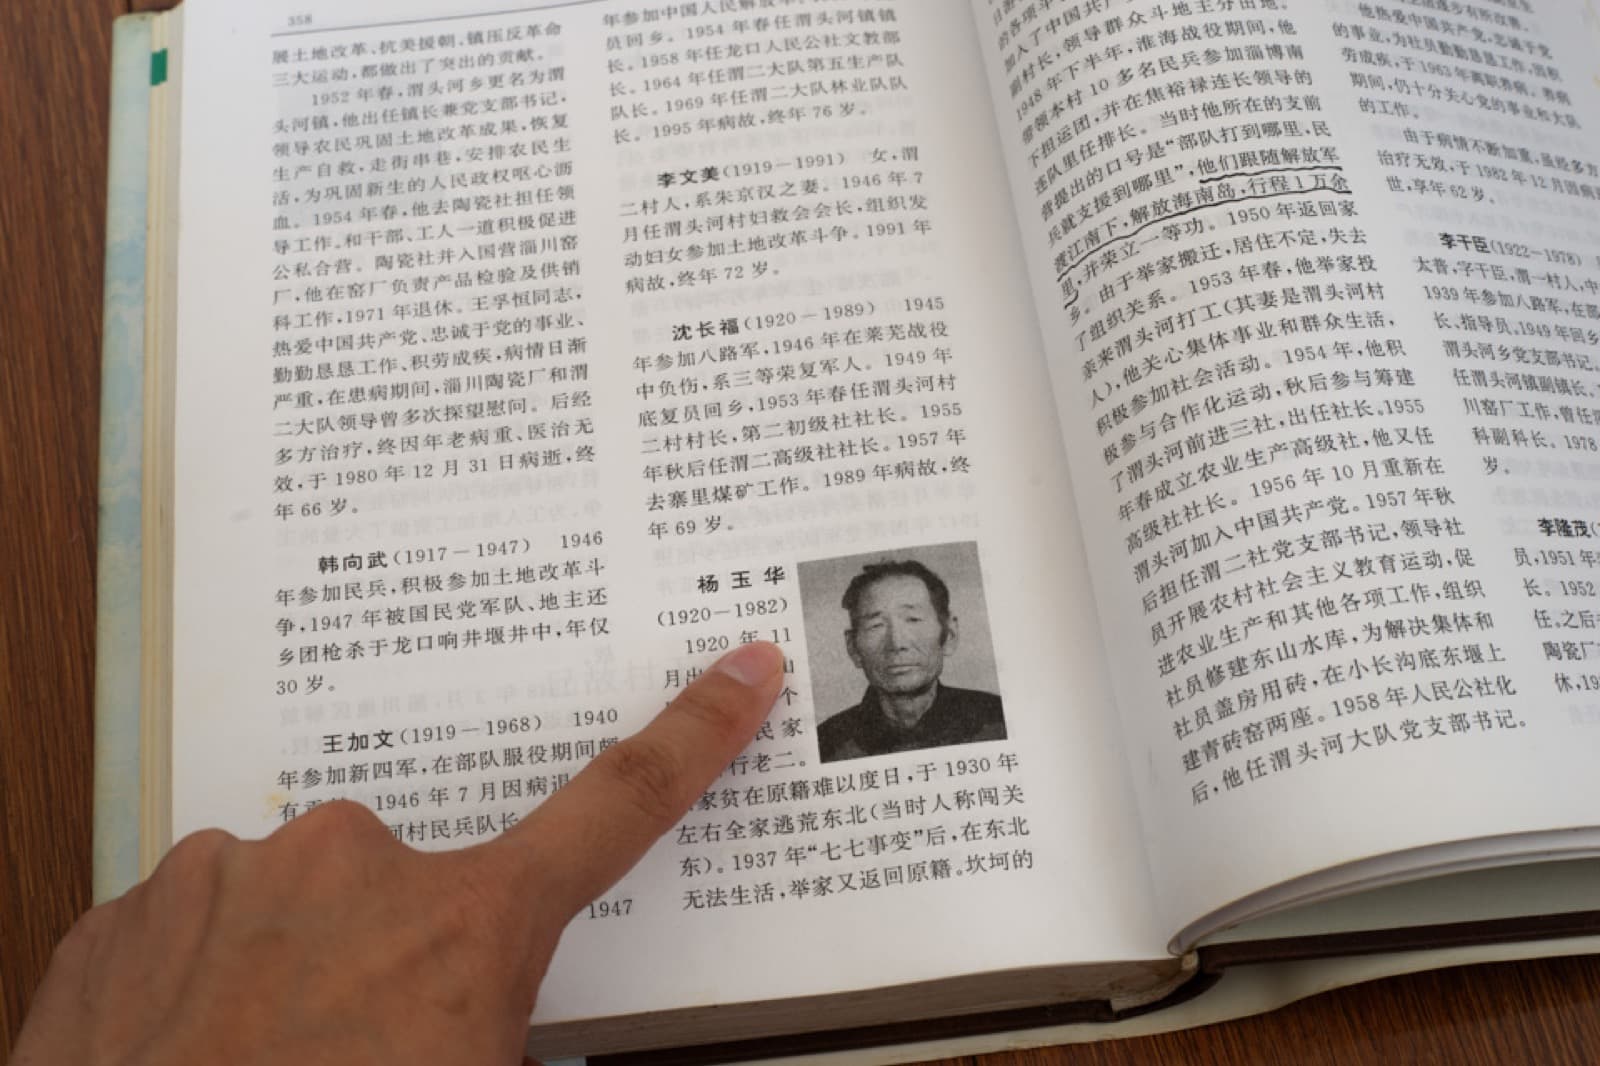 358
展土地改革、抗美援朝、镇压反革命
三大运动，都做出了突出的贡献。
1952年春，渭头河乡更名为渭
头河镇，他出任镇长兼党支部书记，
领导农民巩固土地改革成果，恢复
生产自救，走街串巷，安排农民生
活，为巩固新生的人民政权呕心沥
血。1954年春，他去陶瓷社担任领
导工作。和干部、工人一道积极促进
公私合营。陶瓷社并入国营淄川窑
厂，他在窑厂负责产品检验及供销
科工作，1971年退休。王孚恒同志，
热爱中国共产党、忠诚于党的事业、
勤勤恳恳工作、积劳成疾，病情日渐
严重，在患病期间，淄川陶瓷厂和渭
二大队领导曾多次探望慰问。后经
多方治疗，终因年老病重、医治无
效，于1980年12月31日病逝，终
年66岁。
韩向武(1917－1947) 1946
年参加民兵，积极参加土地改革斗
争，1947年被国民党军队、地主还
乡团枪杀于龙口响井堰井中，年仅
30岁。
王加文(1919－1968) 1940
年参加新四军，在部队服役期间颇
有 1946年7月因病退
河村民兵队长
1947
年参加中国人民解放军
员回乡。1954年春任渭头河镇镇
长。1958年任龙口人民公社文教部
长。1964年任渭二大队第五生产队
队长。1969年任渭二大队林业队队
长。1995年病故，终年76岁。
李文美(1919－1991) 女，渭
二村人，系朱京汉之妻。1946年7
月任渭头河村妇救会会长，组织发
动妇女参加土地改革斗争。1991年
病故，终年72岁。
沈长福(1920－1989) 1945
年参加八路军，1946年在莱芜战役
中负伤，系三等荣复军人。1949年
底复员回乡，1953年春任渭头河村
二村村长，第二初级社社长。1955
年秋后任渭二高级社社长。1957年
去寨里煤矿工作。1989年病故，终
年69岁。
杨玉华
(1920－1982)
1920年11
月出 山
个
民家
行老二。
家贫在原籍难以度日，于1930年
左右全家逃荒东北(当时人称闯关
东)。1937年“七七事变”后，在东北
无法生活，举家又返回原籍。坎坷的
的各项斗
加入了中国共产
副村长，领导群众斗地主分田地。
1948年下半年，淮海战役期间，他
带领本村10多名民兵参加淄博南
下担运团，并在焦裕禄连长领导的
连队里任排长。当时他所在的支前
营提出的口号是“部队打到哪里，民
兵就支援到哪里”，他们跟随解放军
渡江南下，解放海南岛，行程1万余
里，并荣立一等功。1950年返回家
乡。由于举家搬迁，居住不定，失去
了组织关系。1953年春，他举家投
亲来渭头河打工(其妻是渭头河村
人)，他关心集体事业和群众生活，
积极参加社会活动。1954年，他积
极参与合作化运动，秋后参与筹建
了渭头河前进三社，出任社长。1955
年春成立农业生产高级社，他又任
高级社社长。1956年10月重新在
渭头河加入中国共产党。1957年秋
后担任渭二社党支部书记，领导社
员开展农村社会主义教育运动，促
进农业生产和其他各项工作，组织
社员修建东山水库，为解决集体和
社员盖房用砖，在小长沟底东堰上
建青砖窑两座。1958年人民公社化
后，他任渭头河大队党支部书记。
他热爱中国共产党，忠诚于党
的事业，为社员勤勤恳恳工作，因积
劳成疾，于1963年离职养病。养病
期间，仍十分关心党的事业和大队
的工作。
由于病情不断加重，虽经多方
治疗无效，于1982年12月因病
世，享年62岁。
李干臣(1922－1978)
太普，字干臣，渭一村人，中
1939年参加八路军，在部
长、指导员，1949年回乡
渭头河乡党支部书记。
任渭头河镇副镇长、
川窑厂工作，曾任
科副科长。1978
岁。
李隆茂(
员，1951年
长。1952
任，之后
陶瓷厂
休，19